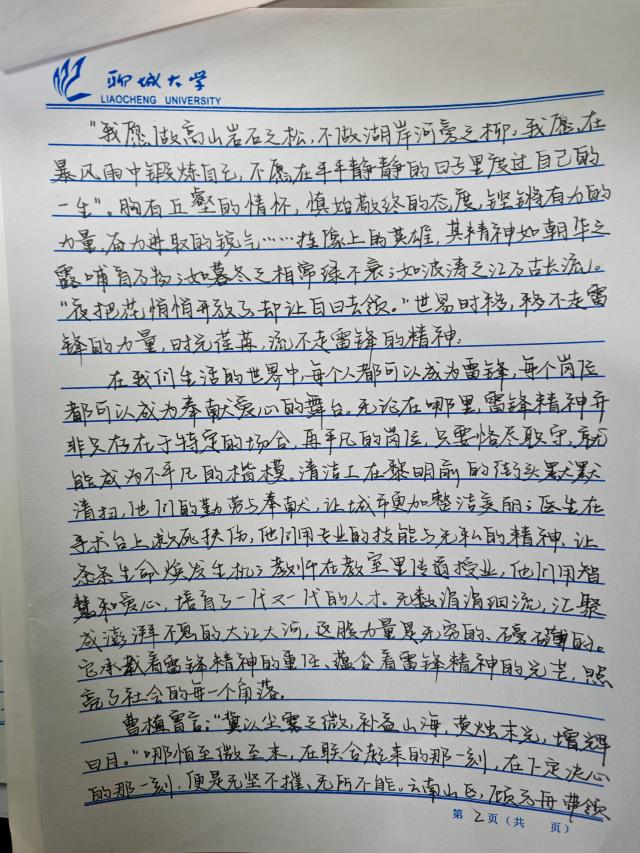 聊城大学
LIAOCHENG UNIVERSITY
"我愿做高山岩石之松,不做湖岸河旁之柳。我愿在
暴风雨中锻炼自己,不愿在平平静静的日子里度过自己的
一生"。胸有丘壑的情怀,慎始敬终的态度,铿锵有力的
力量,奋力进取的锐气……挂像上的英雄,其精神如朝华之
露哺育万物;如暮冬之柏常绿不衰;如波涛之江万古长流。
"夜把花悄悄开放了却让白日去领。"世易时移,移不走雷
锋的力量,时光荏苒,流不走雷锋的精神。
在我们生活的世界中,每个人都可以成为雷锋,每个岗位
都可以成为奉献爱心的舞台。无论在哪里,雷锋精神并
非只存在于特定的场合,再平凡的岗位,只要恪尽职守,就
能成为不平凡的楷模。清洁工在黎明前的街头默默
清扫,他们的勤劳与奉献,让城市更加整洁美丽;医生在
手术台上救死扶伤,他们用专业的技能与无私的精神,让
条条生命焕发生机;教师在教室里传道授业,他们用智
慧和爱心,培育了一代又一代的人才。无数涓涓细流,汇聚
成澎湃不息的大江大河,这股力量是无穷的、
它承载着雷锋精神的重任,蕴含着雷锋精神的光芒,照
亮了社会的每一个角落。
曹植曾言:"冀以尘雾之微,补益山海,荧烛末光,增辉
日月。"哪怕至微至末,在联合起来的那一刻,在下定决心
的那一刻,便是无坚不摧、无所不能。云南山区,带领
第 2 页(共 页)